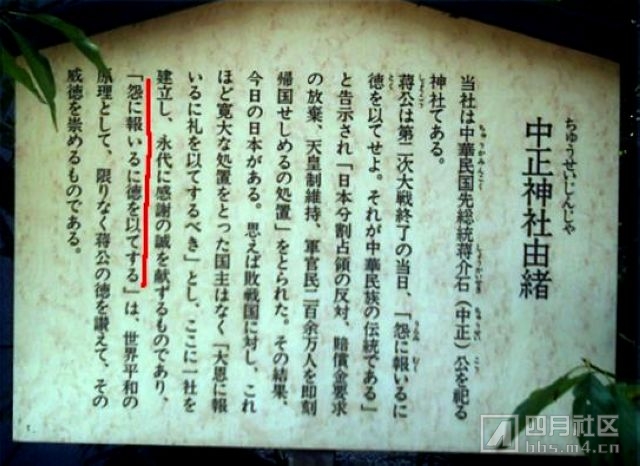 中正神社由緒
ちゅうせいじんじゃ
当社は中華民国先総統蒋介石（中正）公を祀る
ちゅうかみんこく
しょうかいせき
ちゅうせい
こう
神社である。
蒋公は第二次大戦終了の当日、「怨に報いるに
しょうこう
うらみ
むく
徳を以てせよ。それが中華民族の伝統である」
とく
と告示され「日本分割占領の反対、賠償金要求
の放棄、天皇制維持、軍官民二百余万人を即刻
帰国せしめるの処置」をとられた。その結果、
今日の日本がある。思えば敗戦国に対し、これ
ほど寛大な処置をとった国主はなく「大恩に報
いるに礼を以てするべき」とし、ここに一社を
建立し、永代に感謝の誠を献ずるものであり、
「怨に報いるに徳を以てする」は、世界平和の
原理として、限りなく蒋公の徳を讃えて、その
威徳を崇めるものである。
四月社区
bbs.m4.cn